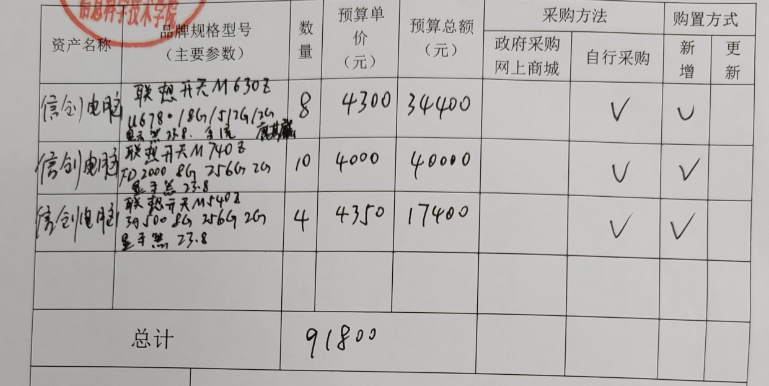 信息科学技术学院
资产名称 品牌规格型号（主要参数） 数量 预算单价（元） 预算总额（元） 采购方法 购置方式
政府采购网上商城 自行采购 新增 更新
信创电脑 联想开天M630Z 8 4300 34400 ✓ ✓
U6780 / 8G / 512G / 2G
显示器 23.8
信创电脑 联想开天M740Z 10 4000 40000 ✓ ✓
FD2000 8G 256G 2G
显示器 23.8
信创电脑 联想开天M540Z 4 4350 17400 ✓ ✓
3A500 8G 256G 2G
显示器 23.8
总计 91800